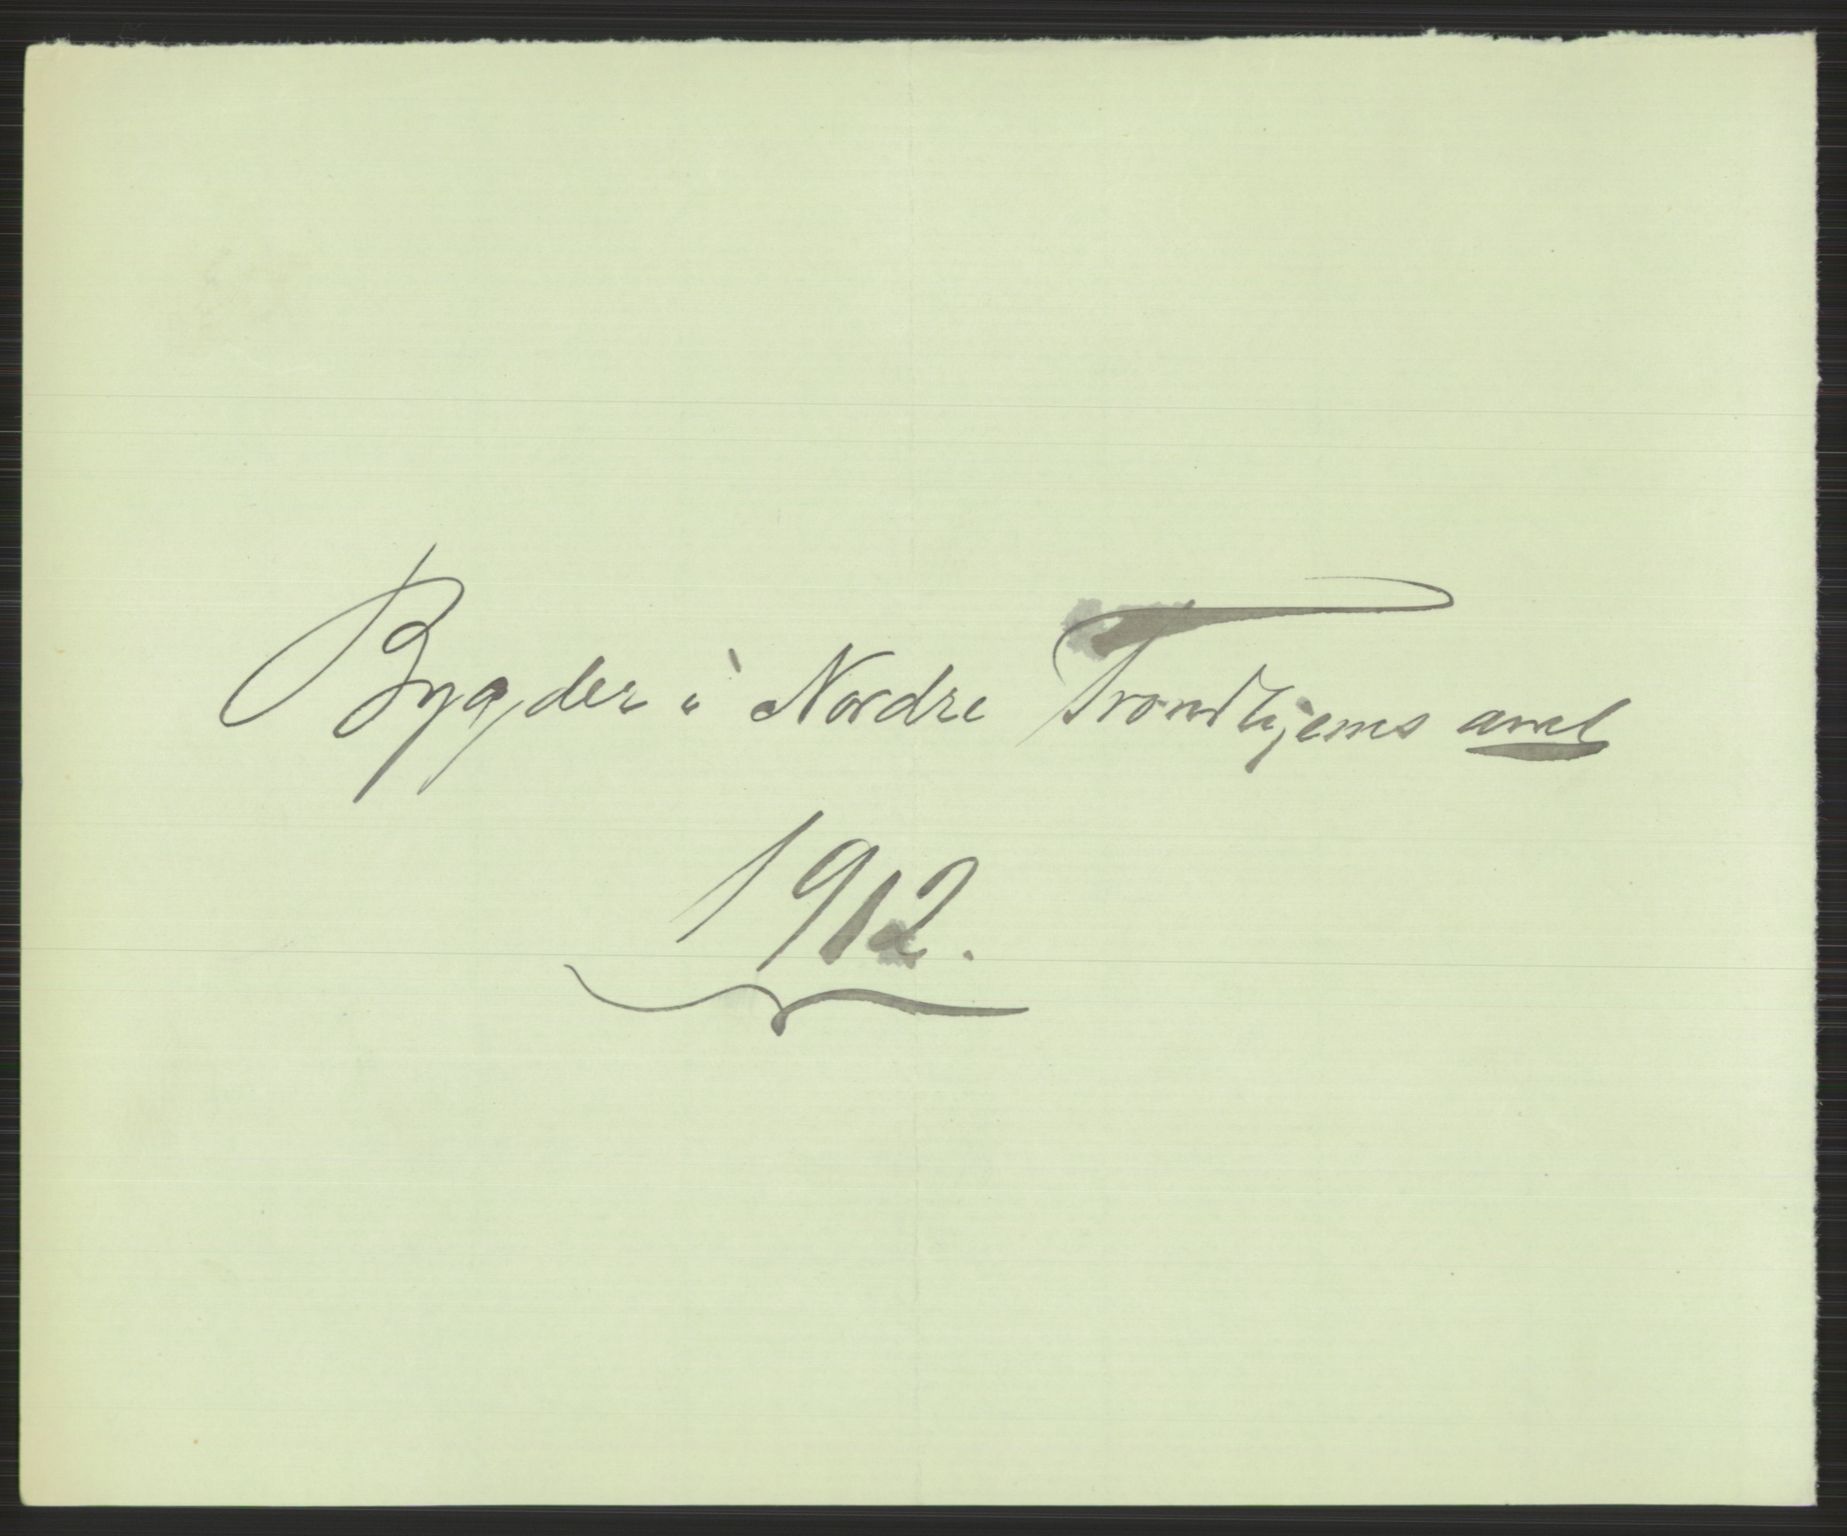 Bygder i Nordre Trondhjems amt
1912.